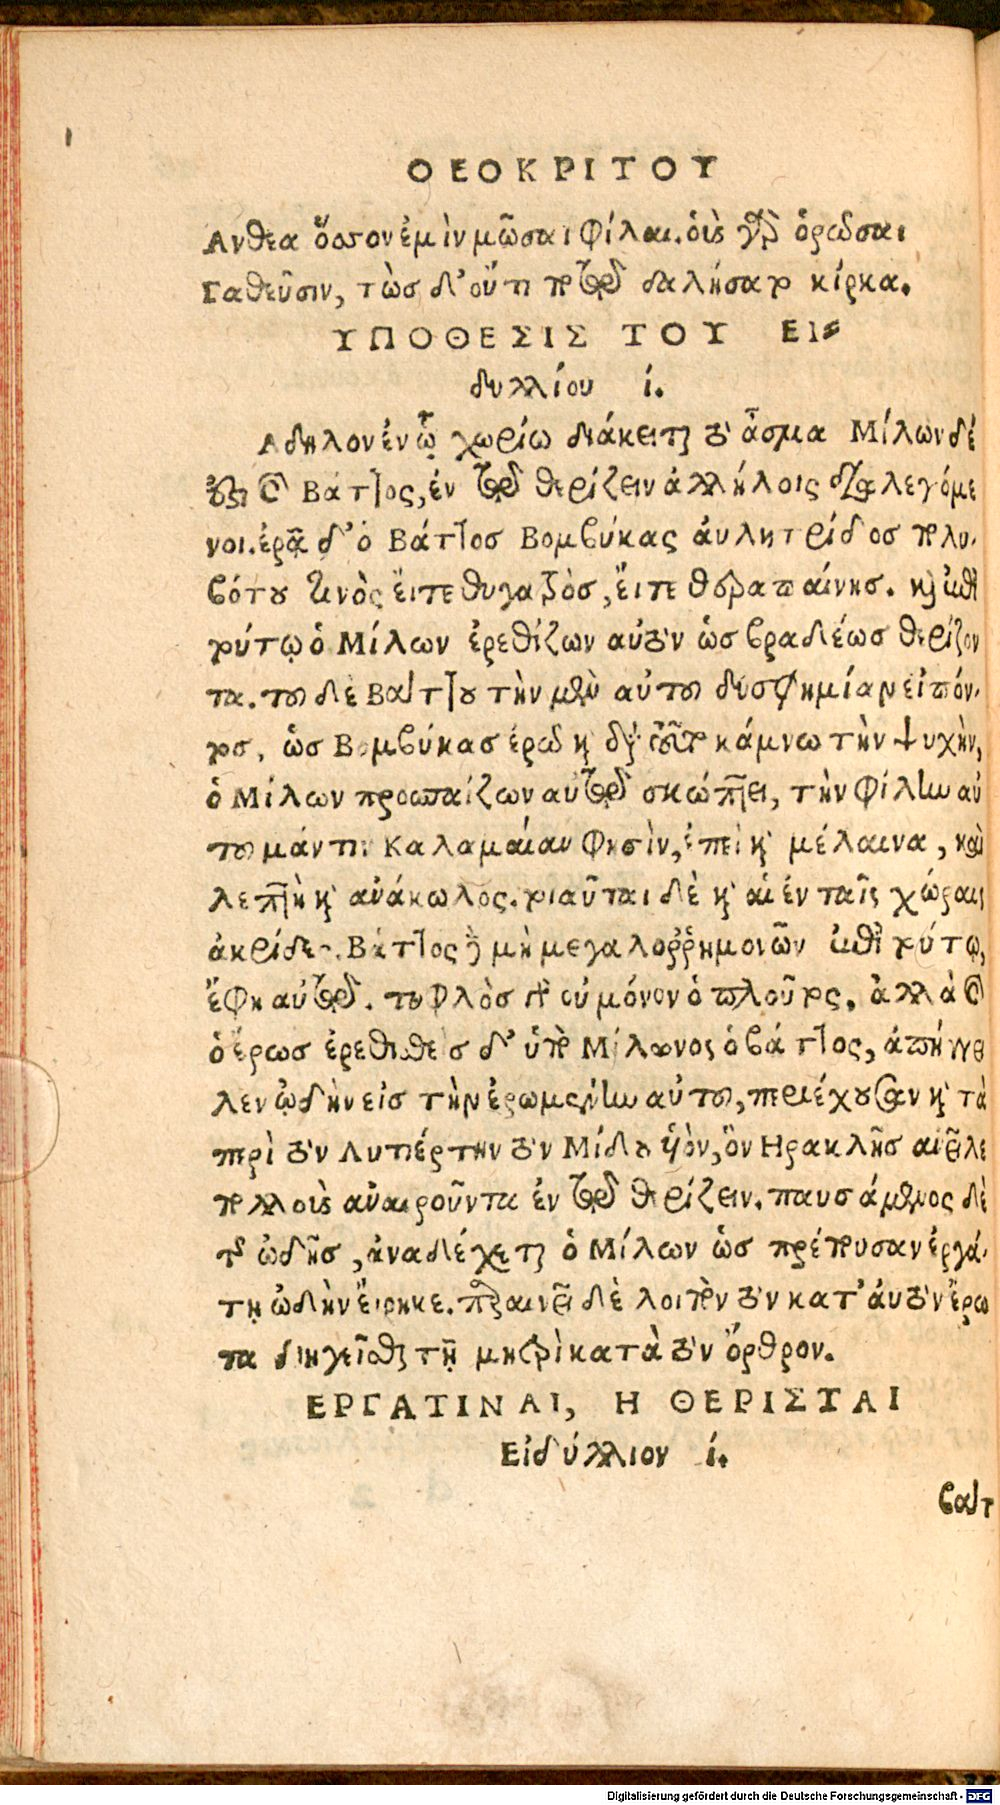 ΘΕΟΚΡΙΤΟΥ
Ανθεα ὅσσον ἐμὶν μῶσαι φίλαι. οἷς γὰρ ὁρῶσαι
Γαθεῦσιν, τὼς δ' οὔτι ποτῷ δαλήσατο κίρκα.
ΥΠΟΘΕΣΙΣ ΤΟΥ ΕΙ-
δυλλίου ί.
Αδηλον ἐν ᾧ χωρίω διάκειται τὸ ᾆσμα Μίλων δέ
ἐστι καὶ Βάττος, ἐν τῷ θερίζειν ἀλλήλοις διαλεγόμε
νοι. ἐρᾷ δ' ὁ Βάττοσ Βομβύκας ἀυλητρίδοσ πολυ-
βότου τινὸς ἔιτε θυγατρὸσ, ἔιτε θεραπαίνησ. καὶ ἐπὶ
τούτῳ ὁ Μίλων ἐρεθίζων αὐτὸν ὡσ βραδέωσ θερίζον
τα. τοῦ δὲ Βάττου τὴν μὲν αὐτοῦ δυσφημίαν εἰπόν-
τοσ, ὡσ Βομβύκασ ἐρῶ καὶ διὰ τοῦτο κάμνω τὴν ψυχὴν,
ὁ Μίλων προσπαίζων αὐτῷ σκώπτει, τὴν φίλην αὐ
τοῦ μάντιν Καλαμαίαν φησὶν, ἐπεὶ καὶ μέλαινα, καὶ
λεπτὴ καὶ αὐάκωλος. τοιαῦται δὲ καὶ αἱ ἐν ταῖς χώραις
ἀκρίδες. Βάττος δὲ μὴ μεγαλορρημονῶν ἐπὶ τούτῳ,
ἔφη αὐτῷ. τυφλὸσ γὰρ οὐ μόνον ὁ πλοῦτος, ἀλλὰ καὶ
ὁ ἔρωσ ἐρεθισθεὶσ δ' ὑπὸ Μίλωνος ὁ βάττος, ἀπήγγε
λεν ᾠδὴν εἰσ τὴν ἐρωμένην αὐτοῦ, περιέχουσαν καὶ τὰ
περὶ τὸν Λυτιέρσην τὸν Μίδου ὑὸν, ὃν Ηρακλῆσ ἀνεῖλε
πολλοὺς ἀναιροῦντα ἐν τῷ θερίζειν. παυσάμενος δὲ
τῆς ὠδῆσ, ἀναδέχεται ὁ Μίλων ὡσ πρέπουσαν ἐργά-
τῃ ᾠδὴν ἔιρηκε. παραινεῖ δὲ λοιπὸν τὸν κατ' ἀυτὸν ἔρω
τα διηγεῖσθαι τῇ μητρὶ κατὰ τὸν ὄρθρον.
ΕΡΓΑΤΙΝΑΙ, Η ΘΕΡΙΣΤΑΙ
Εἰδύλλιον ί.
βατ
Digitalisierung gefördert durch die Deutsche Forschungsgemeinschaft - DFG